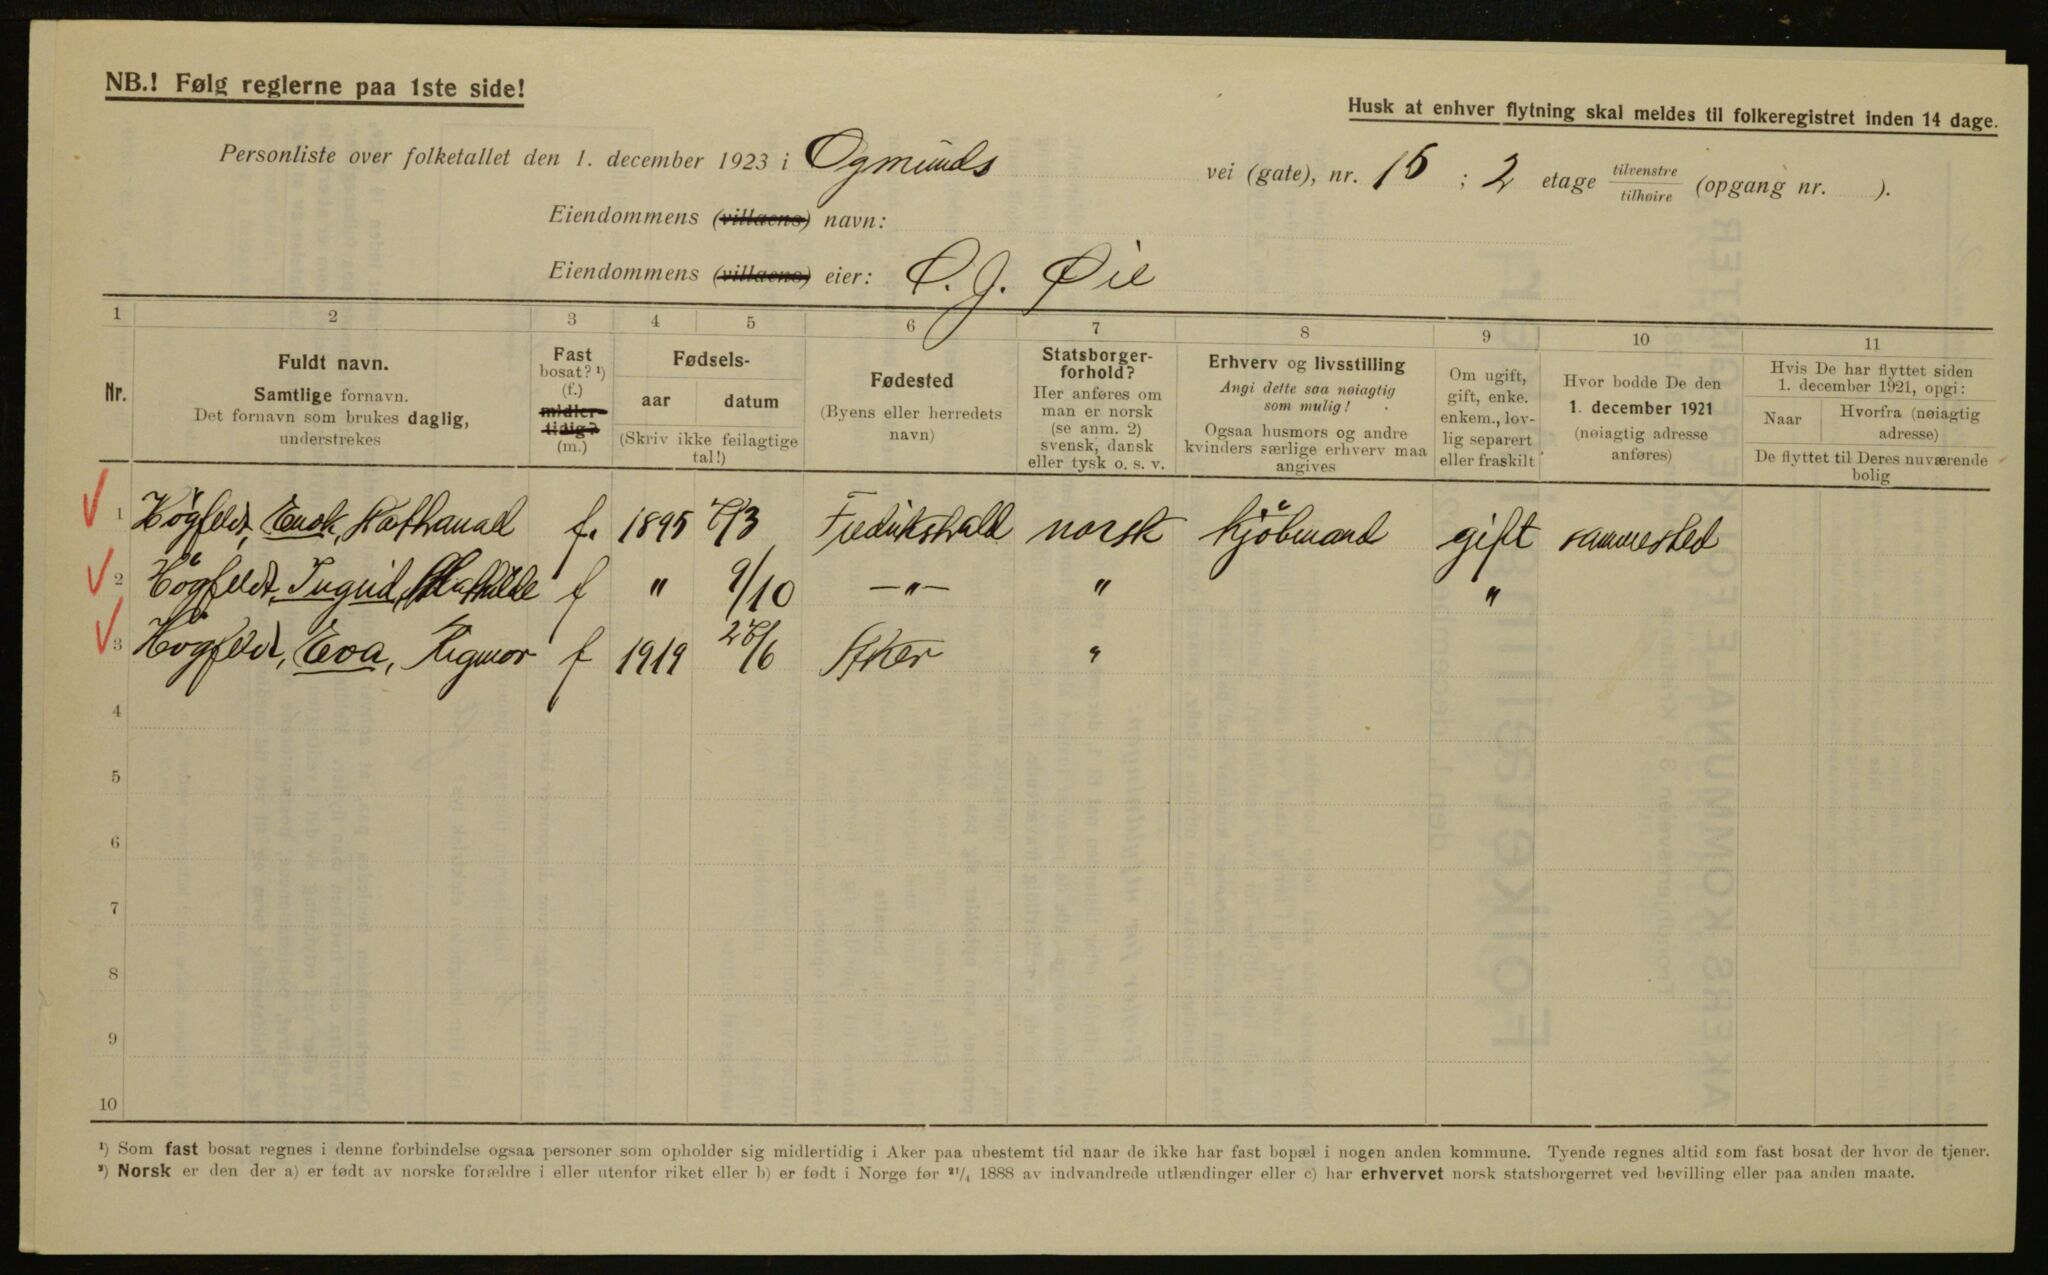 NB.! Følg reglerne paa 1ste side!
Husk at enhver flytning skal meldes til folkeregistret inden 14 dage.
Personliste over folketallet den 1. december 1923 i Ogmunds vei (gate), nr. 15 ; 2 etage tilvenstre tilhøire (opgang nr. ).
Eiendommens (villaens) navn:
Eiendommens (villaens) eier: O. J. Øie
1 2 3 4 5 6 7 8 9 10 11
Nr.
Fuldt navn.
Samtlige fornavn.
Det fornavn som brukes daglig,
understrekes
Fast
bosat? ¹)
(f.)
midler-
tidig?
(m.)
Fødsels-
aar datum
(Skriv ikke feilagtige
tal!)
Fødested
(Byens eller herredets
navn)
Statsborger-
forhold?
Her anføres om
man er norsk
(se anm. 2)
svensk, dansk
eller tysk o. s. v.
Erhverv og livsstilling
Angi dette saa nøiagtig
som mulig!
Ogsaa husmors og andre
kvinders særlige erhverv maa
angives
Om ugift,
gift, enke.
enkem., lov-
lig separert
eller fraskilt
Hvor bodde De den
1. december 1921
(nøiagtig adresse
anføres)
Hvis De har flyttet siden
1. december 1921, opgi:
Naar Hvorfra (nøiagtig
adresse)
De flyttet til Deres nuværende
bolig
1 Högfeldt, Enok, Nathanael f. 1895 /3 Fredrikshald norsk Kjöbmand gift sammested
2 Högfeldt, Ingrid, Mathilde f " 9/10 —"— " "
3 Högfeldt, Eva, Rigmor f 1919 26/6 Aker "
4
5
6
7
8
9
10
¹) Som fast bosat regnes i denne forbindelse ogsaa personer som opholder sig midlertidig i Aker paa ubestemt tid naar de ikke har fast bopæl i nogen anden kommune. Tyende regnes altid som fast bosat der hvor de tjener.
²) Norsk er den der a) er født av norske forældre i eller utenfor riket eller b) er født i Norge før ²¹/₄ 1888 av indvandrede utlændinger eller c) har erhvervet norsk statsborgerret ved bevilling eller paa anden maate.